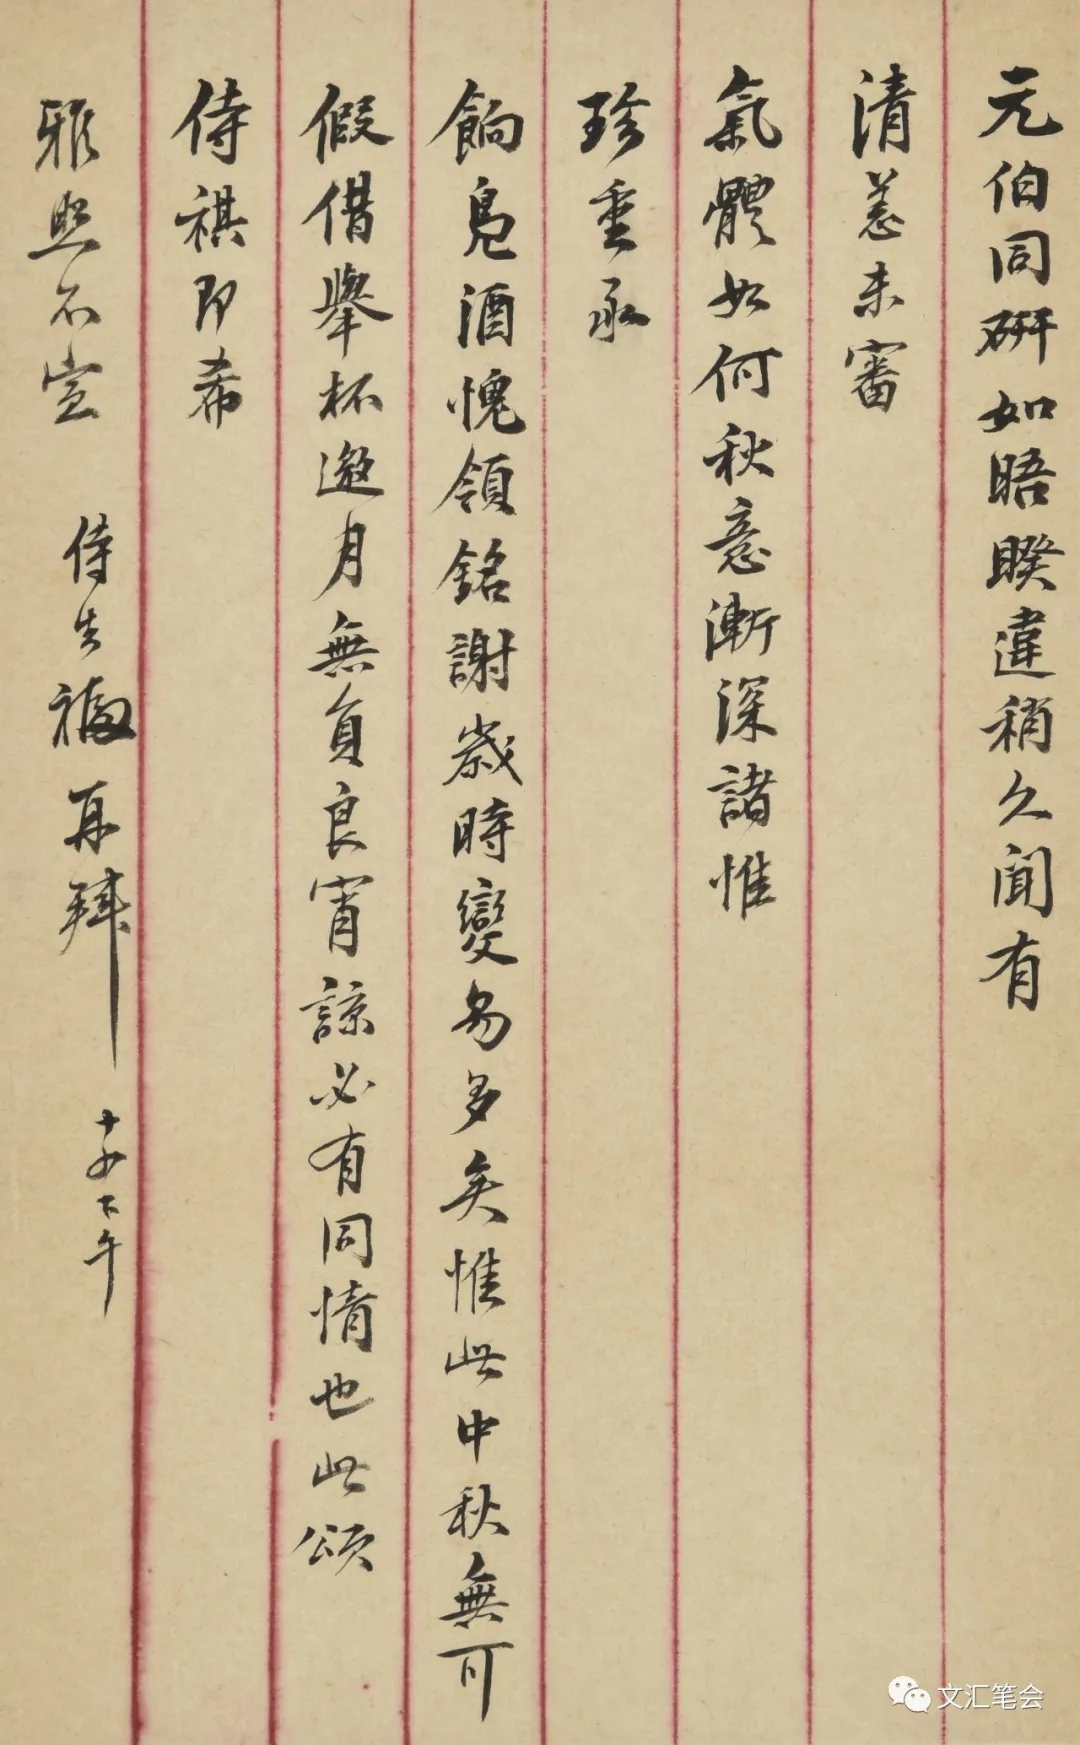 元伯同研如晤睽違稍久聞有
清恙未審
氣體如何秋意漸深諸惟
珍重承
餉鳧酒愧領銘謝歲時變易多矣惟此中秋無可
假借舉杯邀月無負良宵諒必有同情也此頌
侍祺即希
雅照不宣
侍生福再拜
十四下午
文汇笔会